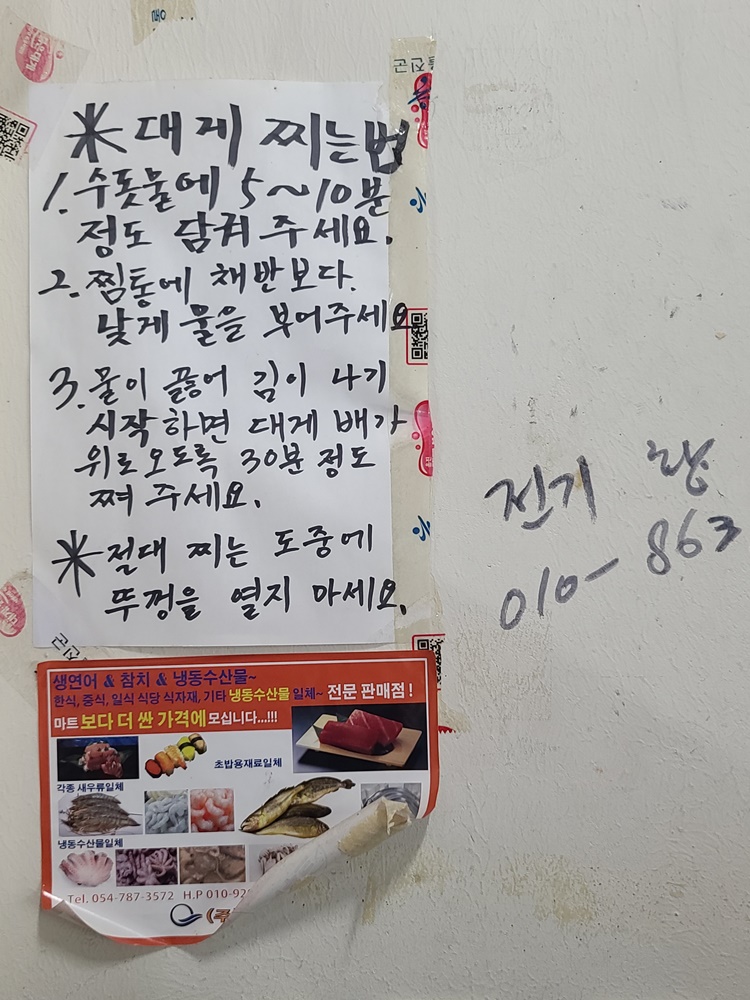 ※ 대게 찌는법
1. 수돗물에 5~10분
정도 담궈 주세요.
2. 찜통에 채반 보다.
낮게 물을 부어주세요
3. 물이 끓어 김이 나기
시작하면 대게 배가
위로오도록 30분 정도
쪄 주세요.
※ 절대 찌는 도중에
뚜껑을 열지 마세요.
전기
010-863
생연어 & 참치 & 냉동수산물~
한식, 중식, 일식 식당 식자재, 기타 냉동수산물 일체~ 전문 판매점!
마트 보다 더 싼 가격에 모십니다...!!!
초밥용재료일체
각종 새우류일체
냉동수산물일체
Tel. 054-787-3572 H.P 010-92
(주